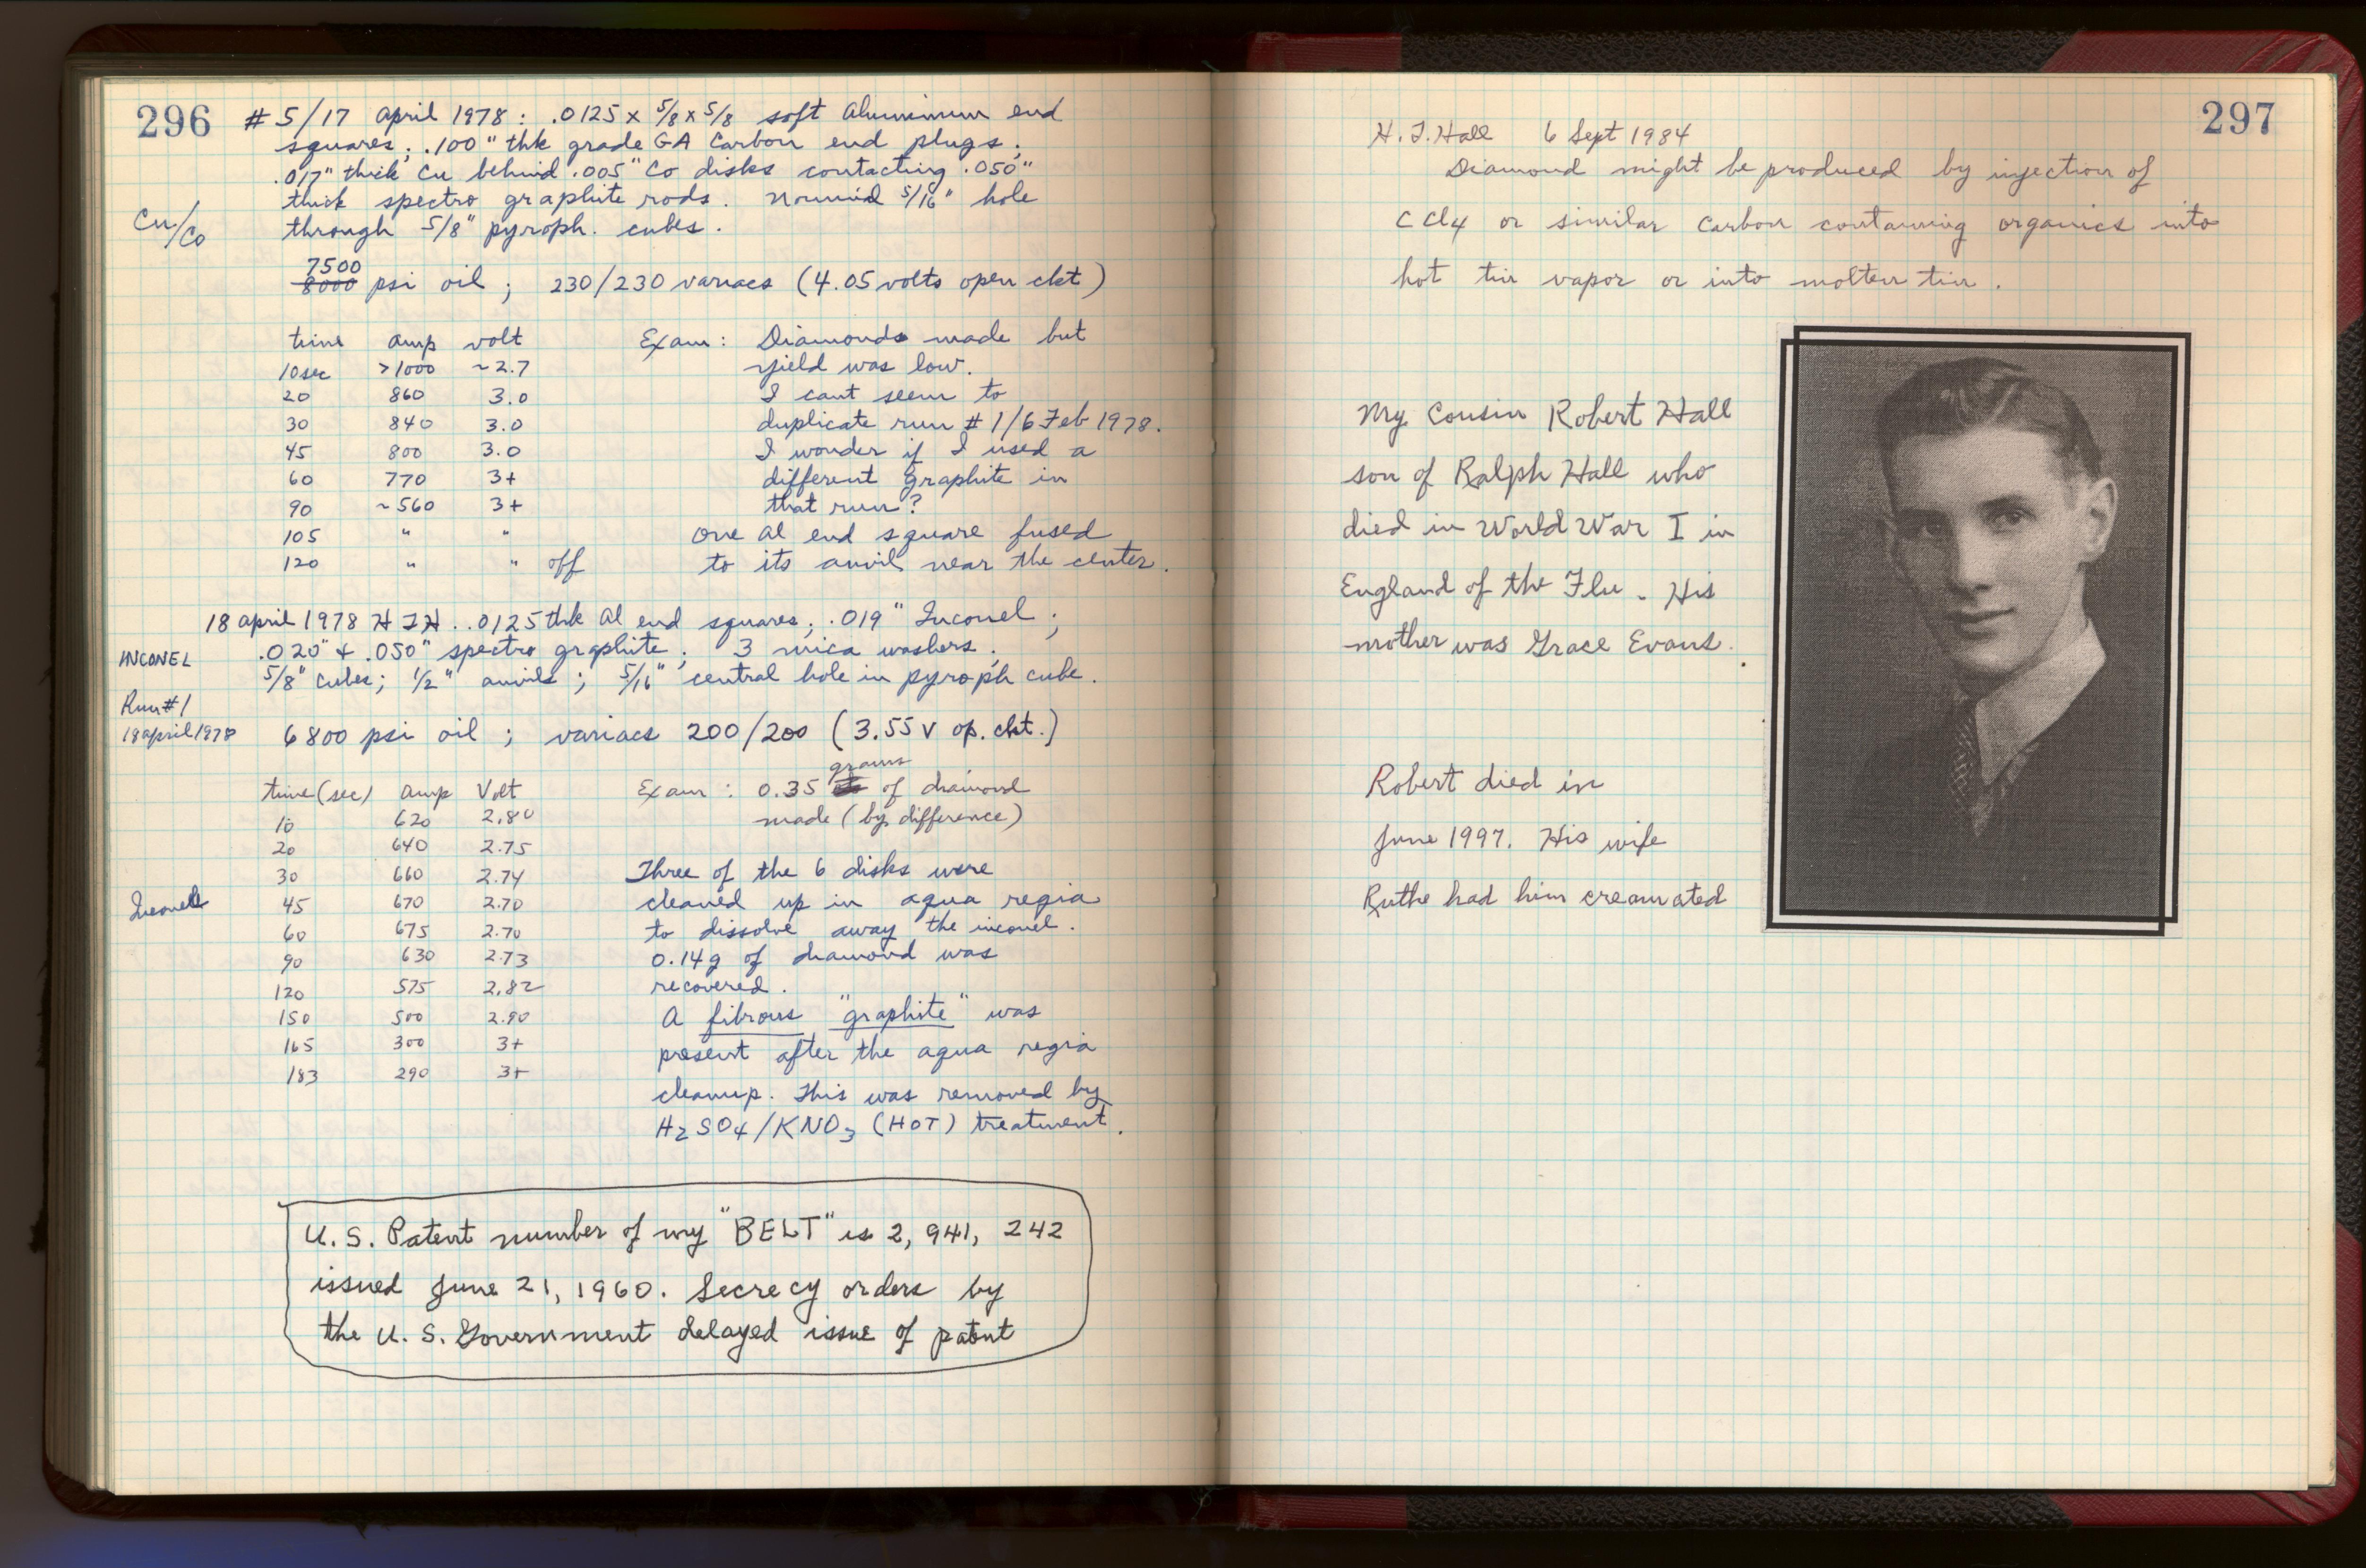 296
# 5/17 april 1978 : .0125 x 5/8 x 5/8 soft Aluminum end
squares; .100" thk grade GA Carbon end plugs;
.017" thick Cu behind .005" Co disks contacting .050"
thick spectro graphite rods. Nominal 5/16" hole
Cu/Co through 5/8" pyroph. cubes.
7500
8000 psi oil ; 230/230 variacs (4.05 volts open ckt)
time amp volt Exam: Diamonds made but
10 sec >1000 ~2.7 yield was low.
20 860 3.0 I cant seem to
30 840 3.0 duplicate run # 1/6 Feb 1978.
45 800 3.0 I wonder if I used a
60 770 3+ different graphite in
90 ~560 3+ that run?
105 " " One Al end square fused
120 " " off to its anvil near the center.
18 april 1978 HTH . .0125 thk Al end squares; .019" Inconel ;
INCONEL .020" & .050" spectro graphite; 3 mica washers;
5/8" cubes; 1/2" anvils; 5/16" central hole in pyroph cube.
Run #1
18 april 1978 6800 psi oil ; variacs 200/200 (3.55 V op. ckt.)
grams
time (sec) amp Volt Exam : 0.35 of diamond
10 620 2.80 made (by difference)
20 640 2.75
30 660 2.74 Three of the 6 disks were
Inconel 45 670 2.70 cleaned up in aqua regia
60 675 2.70 to dissolve away the inconel.
90 630 2.73 0.14g of diamond was
120 575 2.82 recovered.
150 500 2.90 A fibrous "graphite" was
165 300 3+ present after the aqua regia
183 290 3+ cleanup. This was removed by
H2SO4/KNO3 (HOT) treatment.
U.S. Patent number of my "BELT" is 2,941,242
issued June 21, 1960. Secrecy orders by
the U.S. Government delayed issue of patent
297
H. T. Hall 6 Sept 1984
Diamond might be produced by injection of
CCl4 or similar carbon containing organics into
hot tin vapor or into molten tin.
My Cousin Robert Hall
son of Ralph Hall who
died in World War I in
England of the Flu. His
mother was Grace Evans.
Robert died in
June 1997. His wife
Ruthe had him creamated